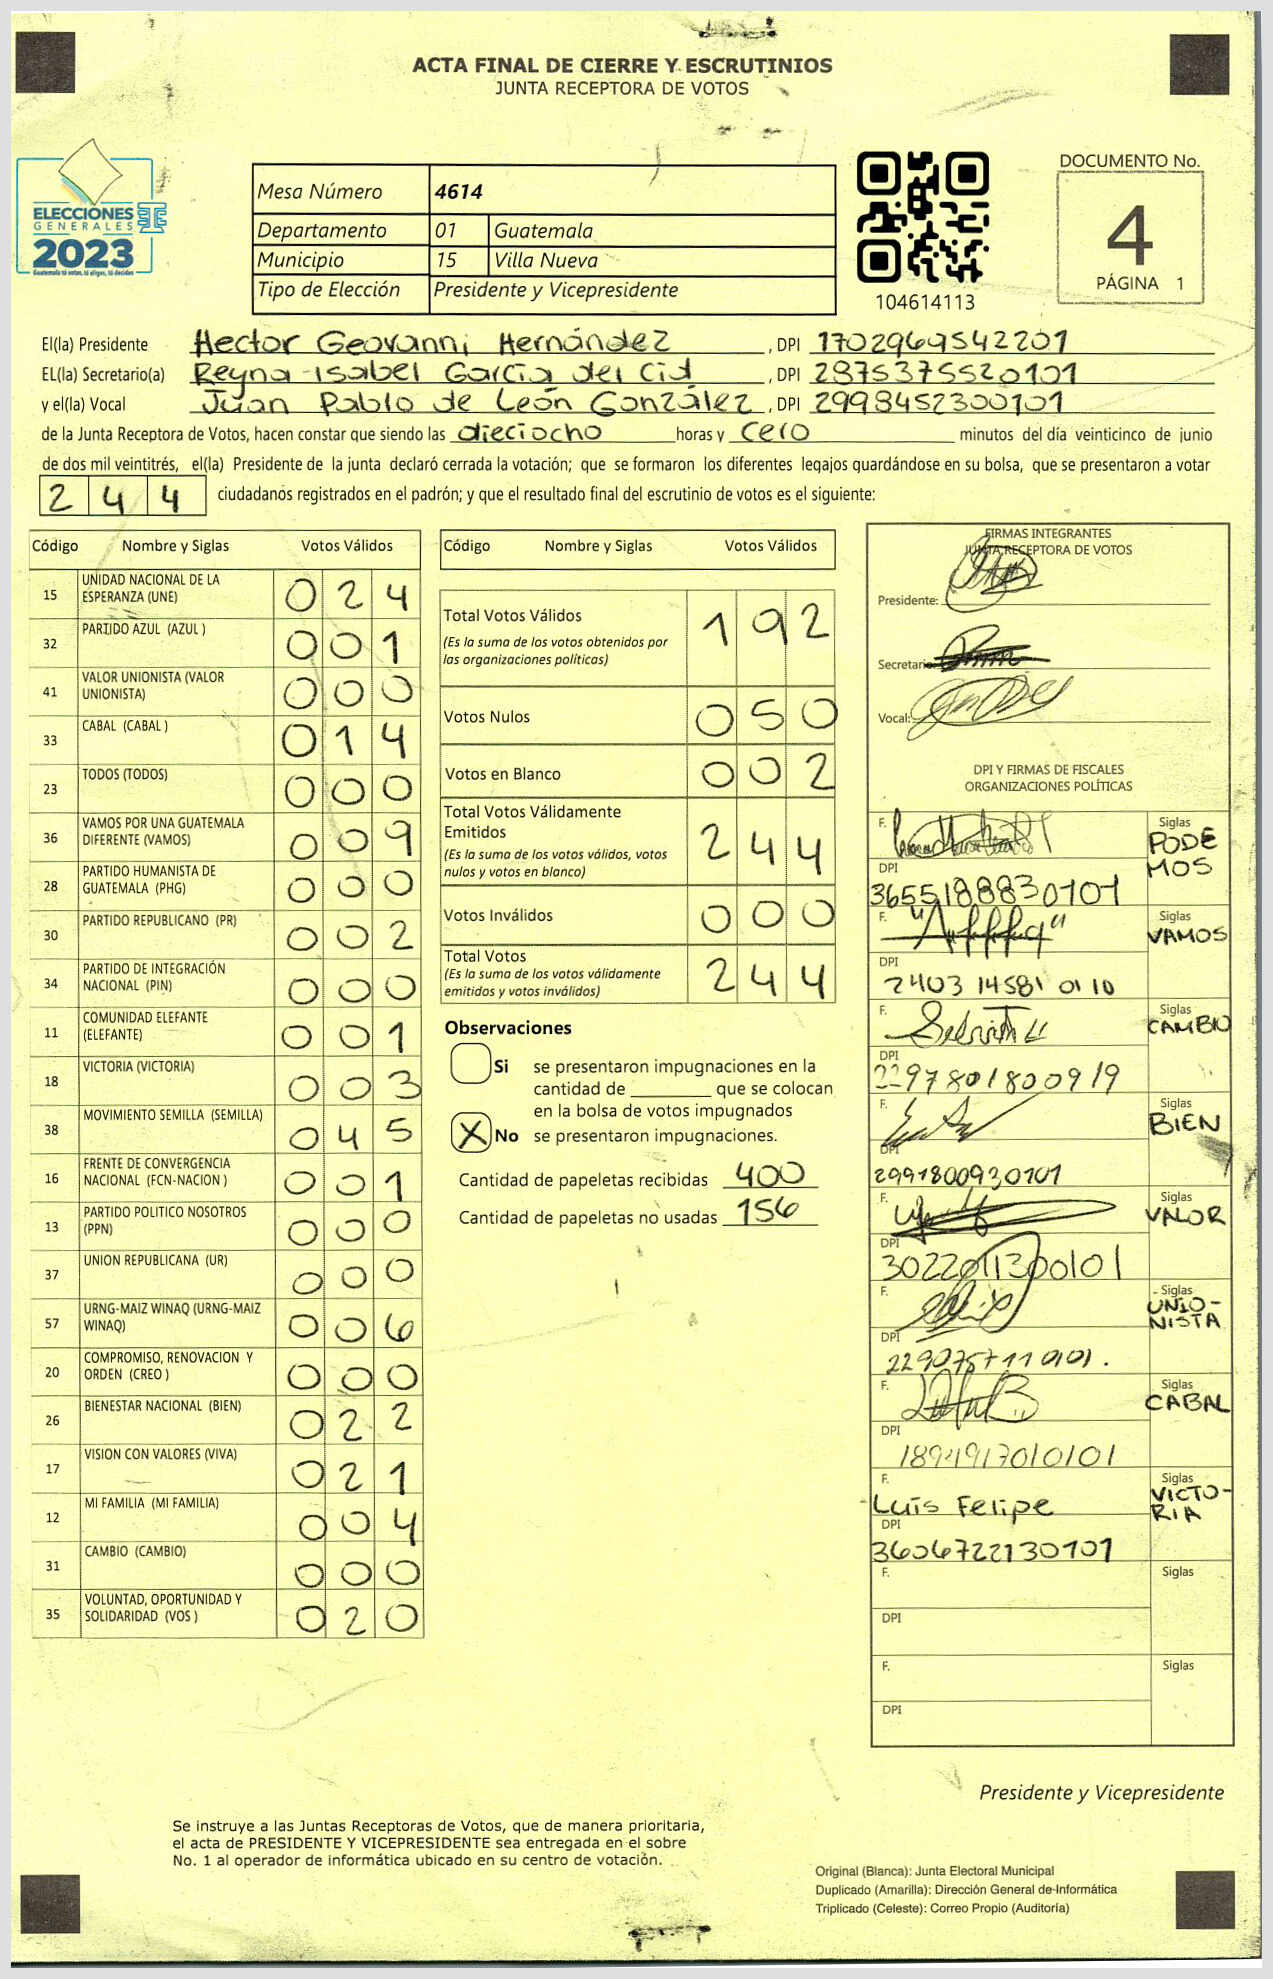 ACTA FINAL DE CIERRE Y ESCRUTINIOS
JUNTA RECEPTORA DE VOTOS
ELECCIONES
GENERALES
2023
Guatemala tú votas, tú eliges, tú decides
Mesa Número 4614
Departamento 01 Guatemala
Municipio 15 Villa Nueva
Tipo de Elección Presidente y Vicepresidente
104614113
DOCUMENTO No.
4
PÁGINA 1
El(la) Presidente Hector Geovanni Hernández, DPI 1702969542201
EL(la) Secretario(a) Reyna Isabel García del Cid, DPI 2875375520101
y el(la) Vocal Juan Pablo de León González, DPI 2998452300101
de la Junta Receptora de Votos, hacen constar que siendo las dieciocho horas y cero minutos del día veinticinco de junio
de dos mil veintitrés, el(la) Presidente de la junta declaró cerrada la votación; que se formaron los diferentes legajos guardándose en su bolsa, que se presentaron a votar
244 ciudadanos registrados en el padrón; y que el resultado final del escrutinio de votos es el siguiente:
Código Nombre y Siglas Votos Válidos
15 UNIDAD NACIONAL DE LA ESPERANZA (UNE) 024
32 PARTIDO AZUL (AZUL ) 001
41 VALOR UNIONISTA (VALOR UNIONISTA) 000
33 CABAL (CABAL ) 014
23 TODOS (TODOS) 000
36 VAMOS POR UNA GUATEMALA DIFERENTE (VAMOS) 009
28 PARTIDO HUMANISTA DE GUATEMALA (PHG) 000
30 PARTIDO REPUBLICANO (PR) 002
34 PARTIDO DE INTEGRACIÓN NACIONAL (PIN) 000
11 COMUNIDAD ELEFANTE (ELEFANTE) 001
18 VICTORIA (VICTORIA) 003
38 MOVIMIENTO SEMILLA (SEMILLA) 045
16 FRENTE DE CONVERGENCIA NACIONAL (FCN-NACION ) 001
13 PARTIDO POLITICO NOSOTROS (PPN) 000
37 UNION REPUBLICANA (UR) 000
57 URNG-MAIZ WINAQ (URNG-MAIZ WINAQ) 006
20 COMPROMISO, RENOVACION Y ORDEN (CREO ) 000
26 BIENESTAR NACIONAL (BIEN) 022
17 VISION CON VALORES (VIVA) 021
12 MI FAMILIA (MI FAMILIA) 004
31 CAMBIO (CAMBIO) 000
35 VOLUNTAD, OPORTUNIDAD Y SOLIDARIDAD (VOS ) 020
Código Nombre y Siglas Votos Válidos
Total Votos Válidos 192
(Es la suma de los votos obtenidos por
las organizaciones políticas)
Votos Nulos 050
Votos en Blanco 002
Total Votos Válidamente
Emitidos 244
(Es la suma de los votos válidos, votos
nulos y votos en blanco)
Votos Inválidos 000
Total Votos 244
(Es la suma de los votos válidamente
emitidos y votos inválidos)
Observaciones
Si se presentaron impugnaciones en la
cantidad de ________ que se colocan
en la bolsa de votos impugnados
X No se presentaron impugnaciones.
Cantidad de papeletas recibidas 400
Cantidad de papeletas no usadas 156
FIRMAS INTEGRANTES
JUNTA RECEPTORA DE VOTOS
Presidente:
Secretario:
Vocal:
DPI Y FIRMAS DE FISCALES
ORGANIZACIONES POLÍTICAS
F. Siglas PODEMOS
DPI 3655188830101
F. Siglas VAMOS
DPI 2403 14581 0110
F. Siglas CAMBIO
DPI 2297801800919
F. Siglas BIEN
DPI 2991800930101
F. Siglas VALOR
DPI 3022011300101
F. Siglas UNIO-
NISTA
DPI 2290757110101.
F. Siglas CABAL
DPI 1894917010101
F. Luis Felipe Siglas VICTO-
RIA
DPI 3606722130101
F. Siglas
DPI
F. Siglas
DPI
Presidente y Vicepresidente
Se instruye a las Juntas Receptoras de Votos, que de manera prioritaria,
el acta de PRESIDENTE Y VICEPRESIDENTE sea entregada en el sobre
No. 1 al operador de informática ubicado en su centro de votación.
Original (Blanca): Junta Electoral Municipal
Duplicado (Amarilla): Dirección General de Informática
Triplicado (Celeste): Correo Propio (Auditoría)